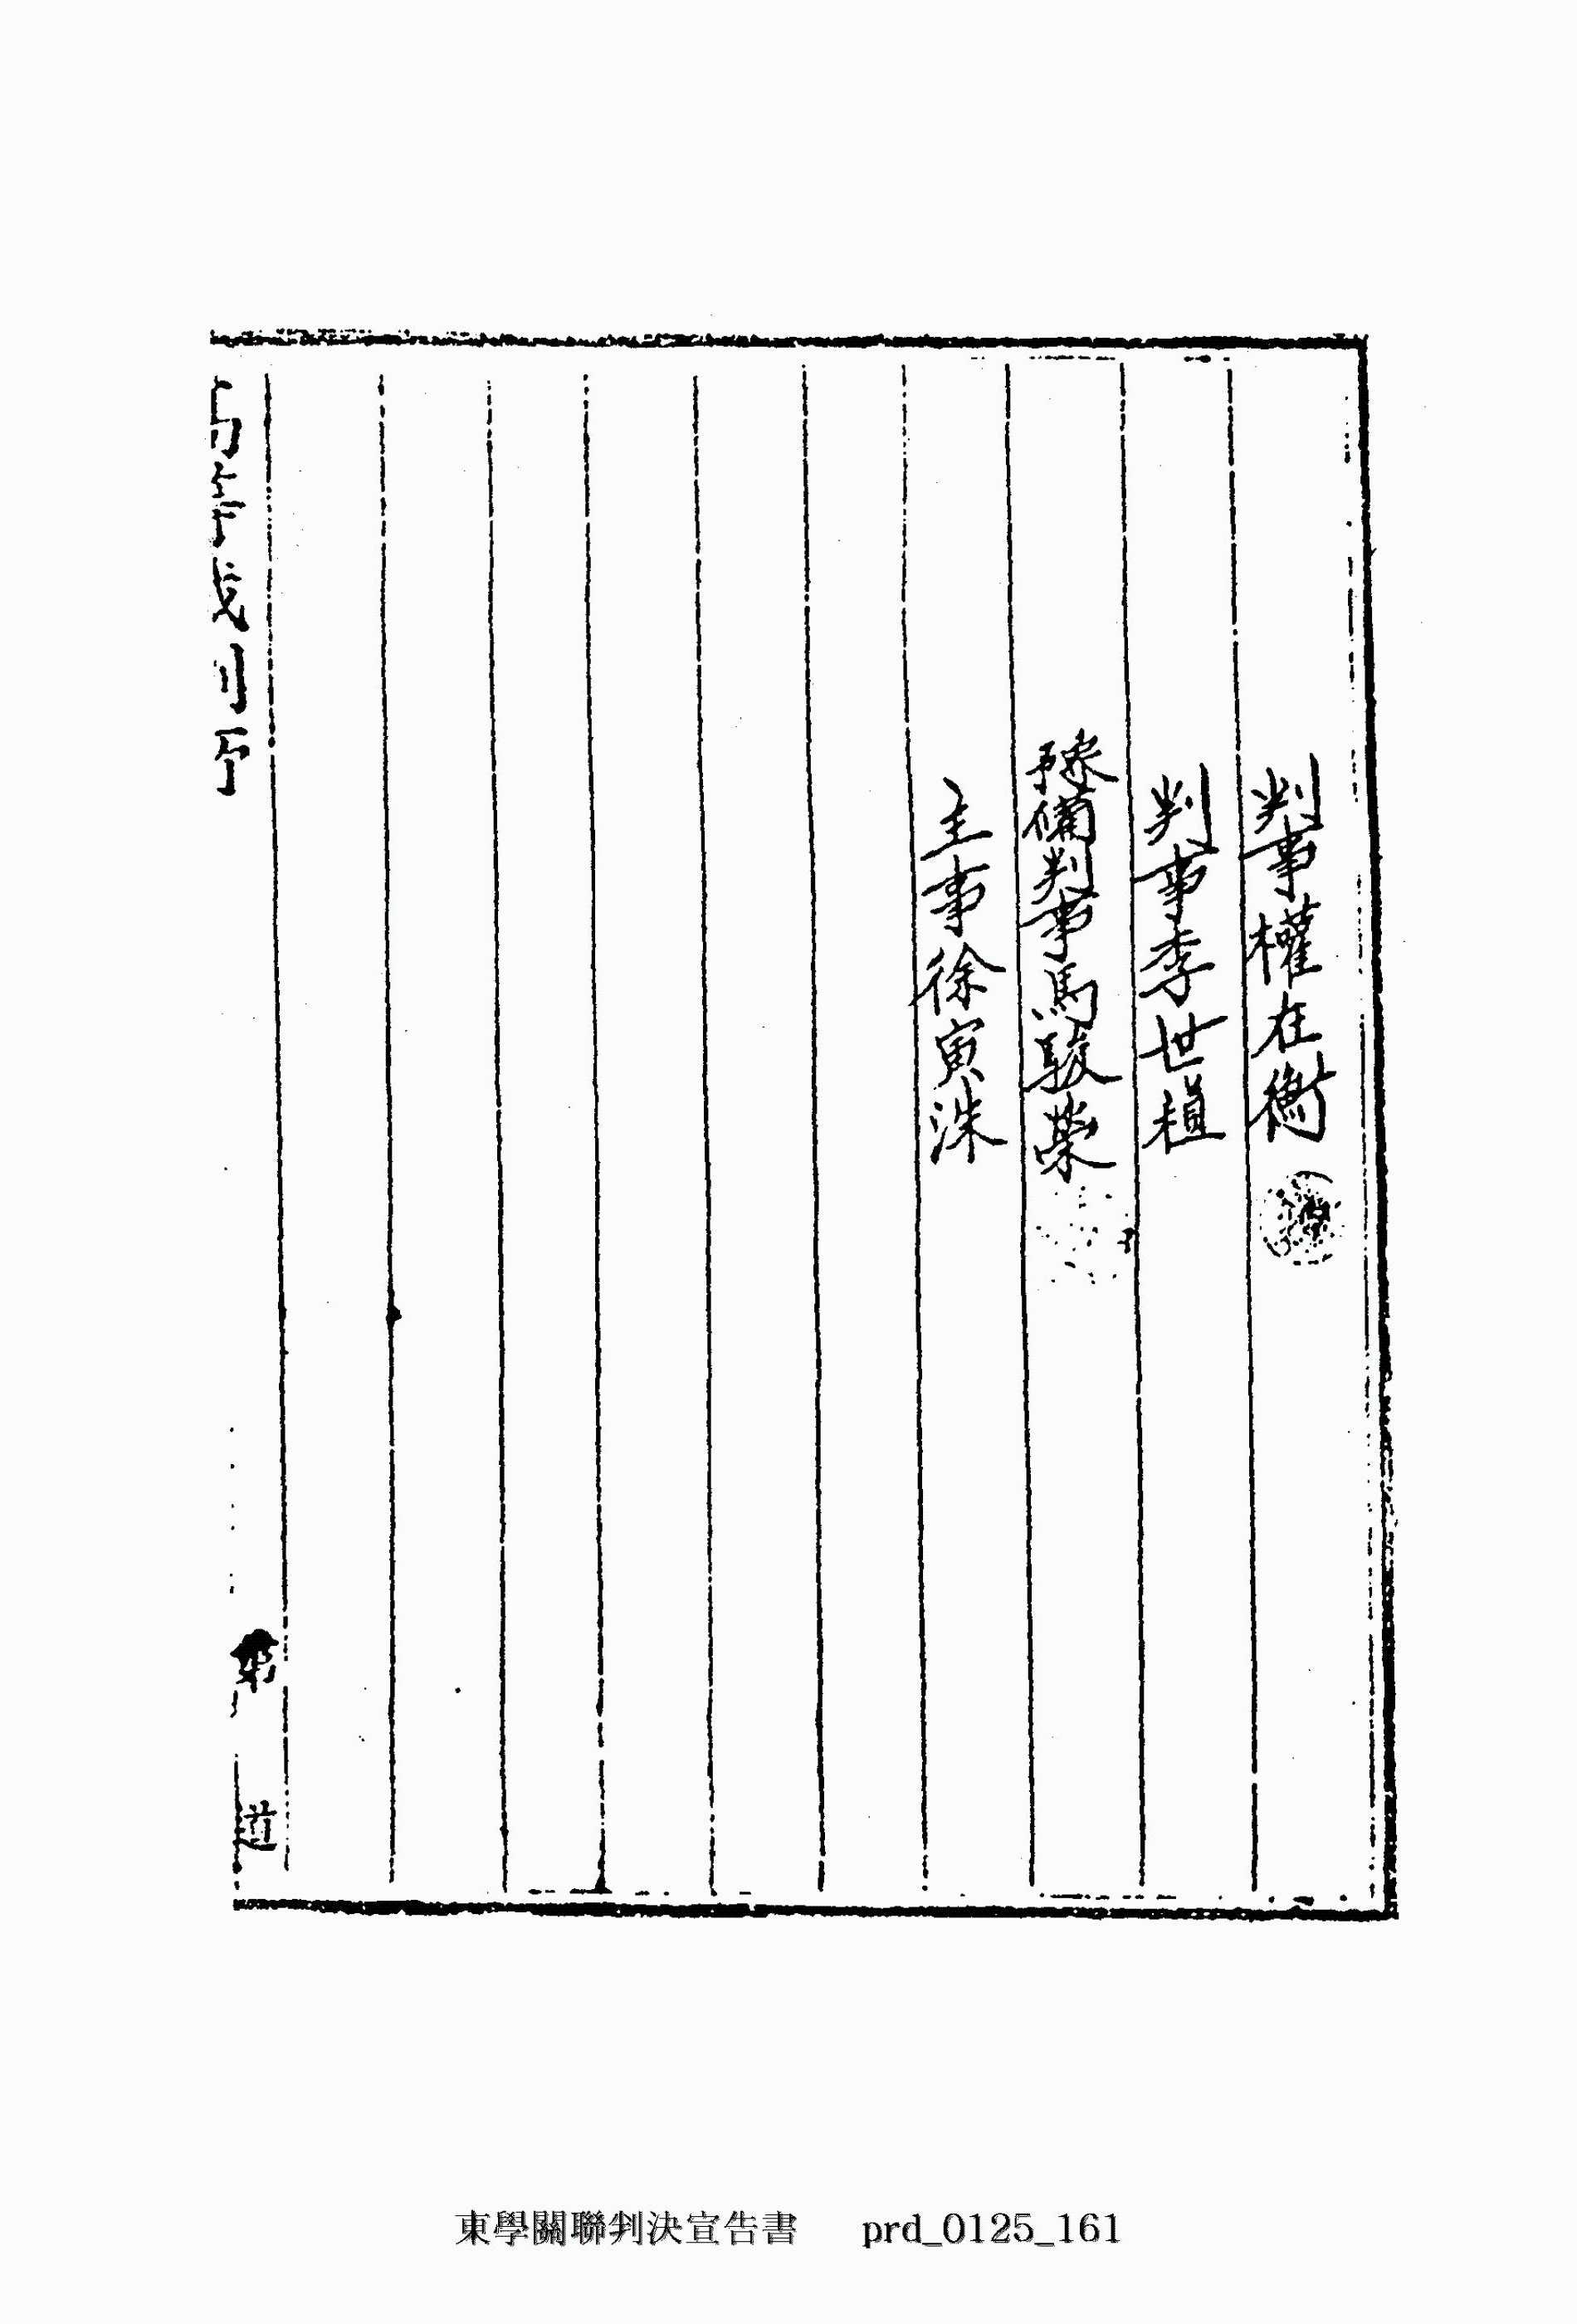 判事權在衡
判事李世稙
豫備判事馬駿榮
主事徐寅洙
第 道
東學關聯判決宣告書 prd_0125_161